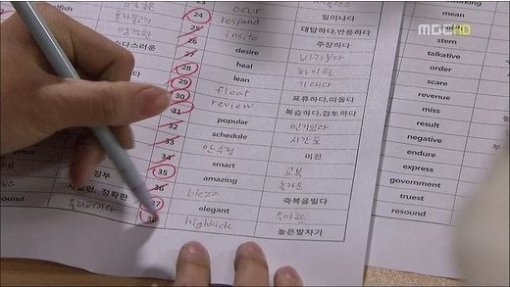 MBC HD
ocur 일어나다
24 respond 대답하다,반응하다
25 insite 주장하다
26 desire 바라다
heal
28 lean 기대다
29 float 표류하다,떠돌다
30 review 복습하다,검토하다
31 popular 인기있다
32 schedule 시간표
33 안수정 미진
34 smart 교복
35 amazing 놀라운
36 blezz 축복을빌다
37 elegant 우아한
38 highkick 높은발차기
엄격한
다스러운
정부
정확한
ound 울려퍼지다
working
mean
stern
talkative
order
scare
revenue
miss
result
negative
endure
express
government
truest
resound